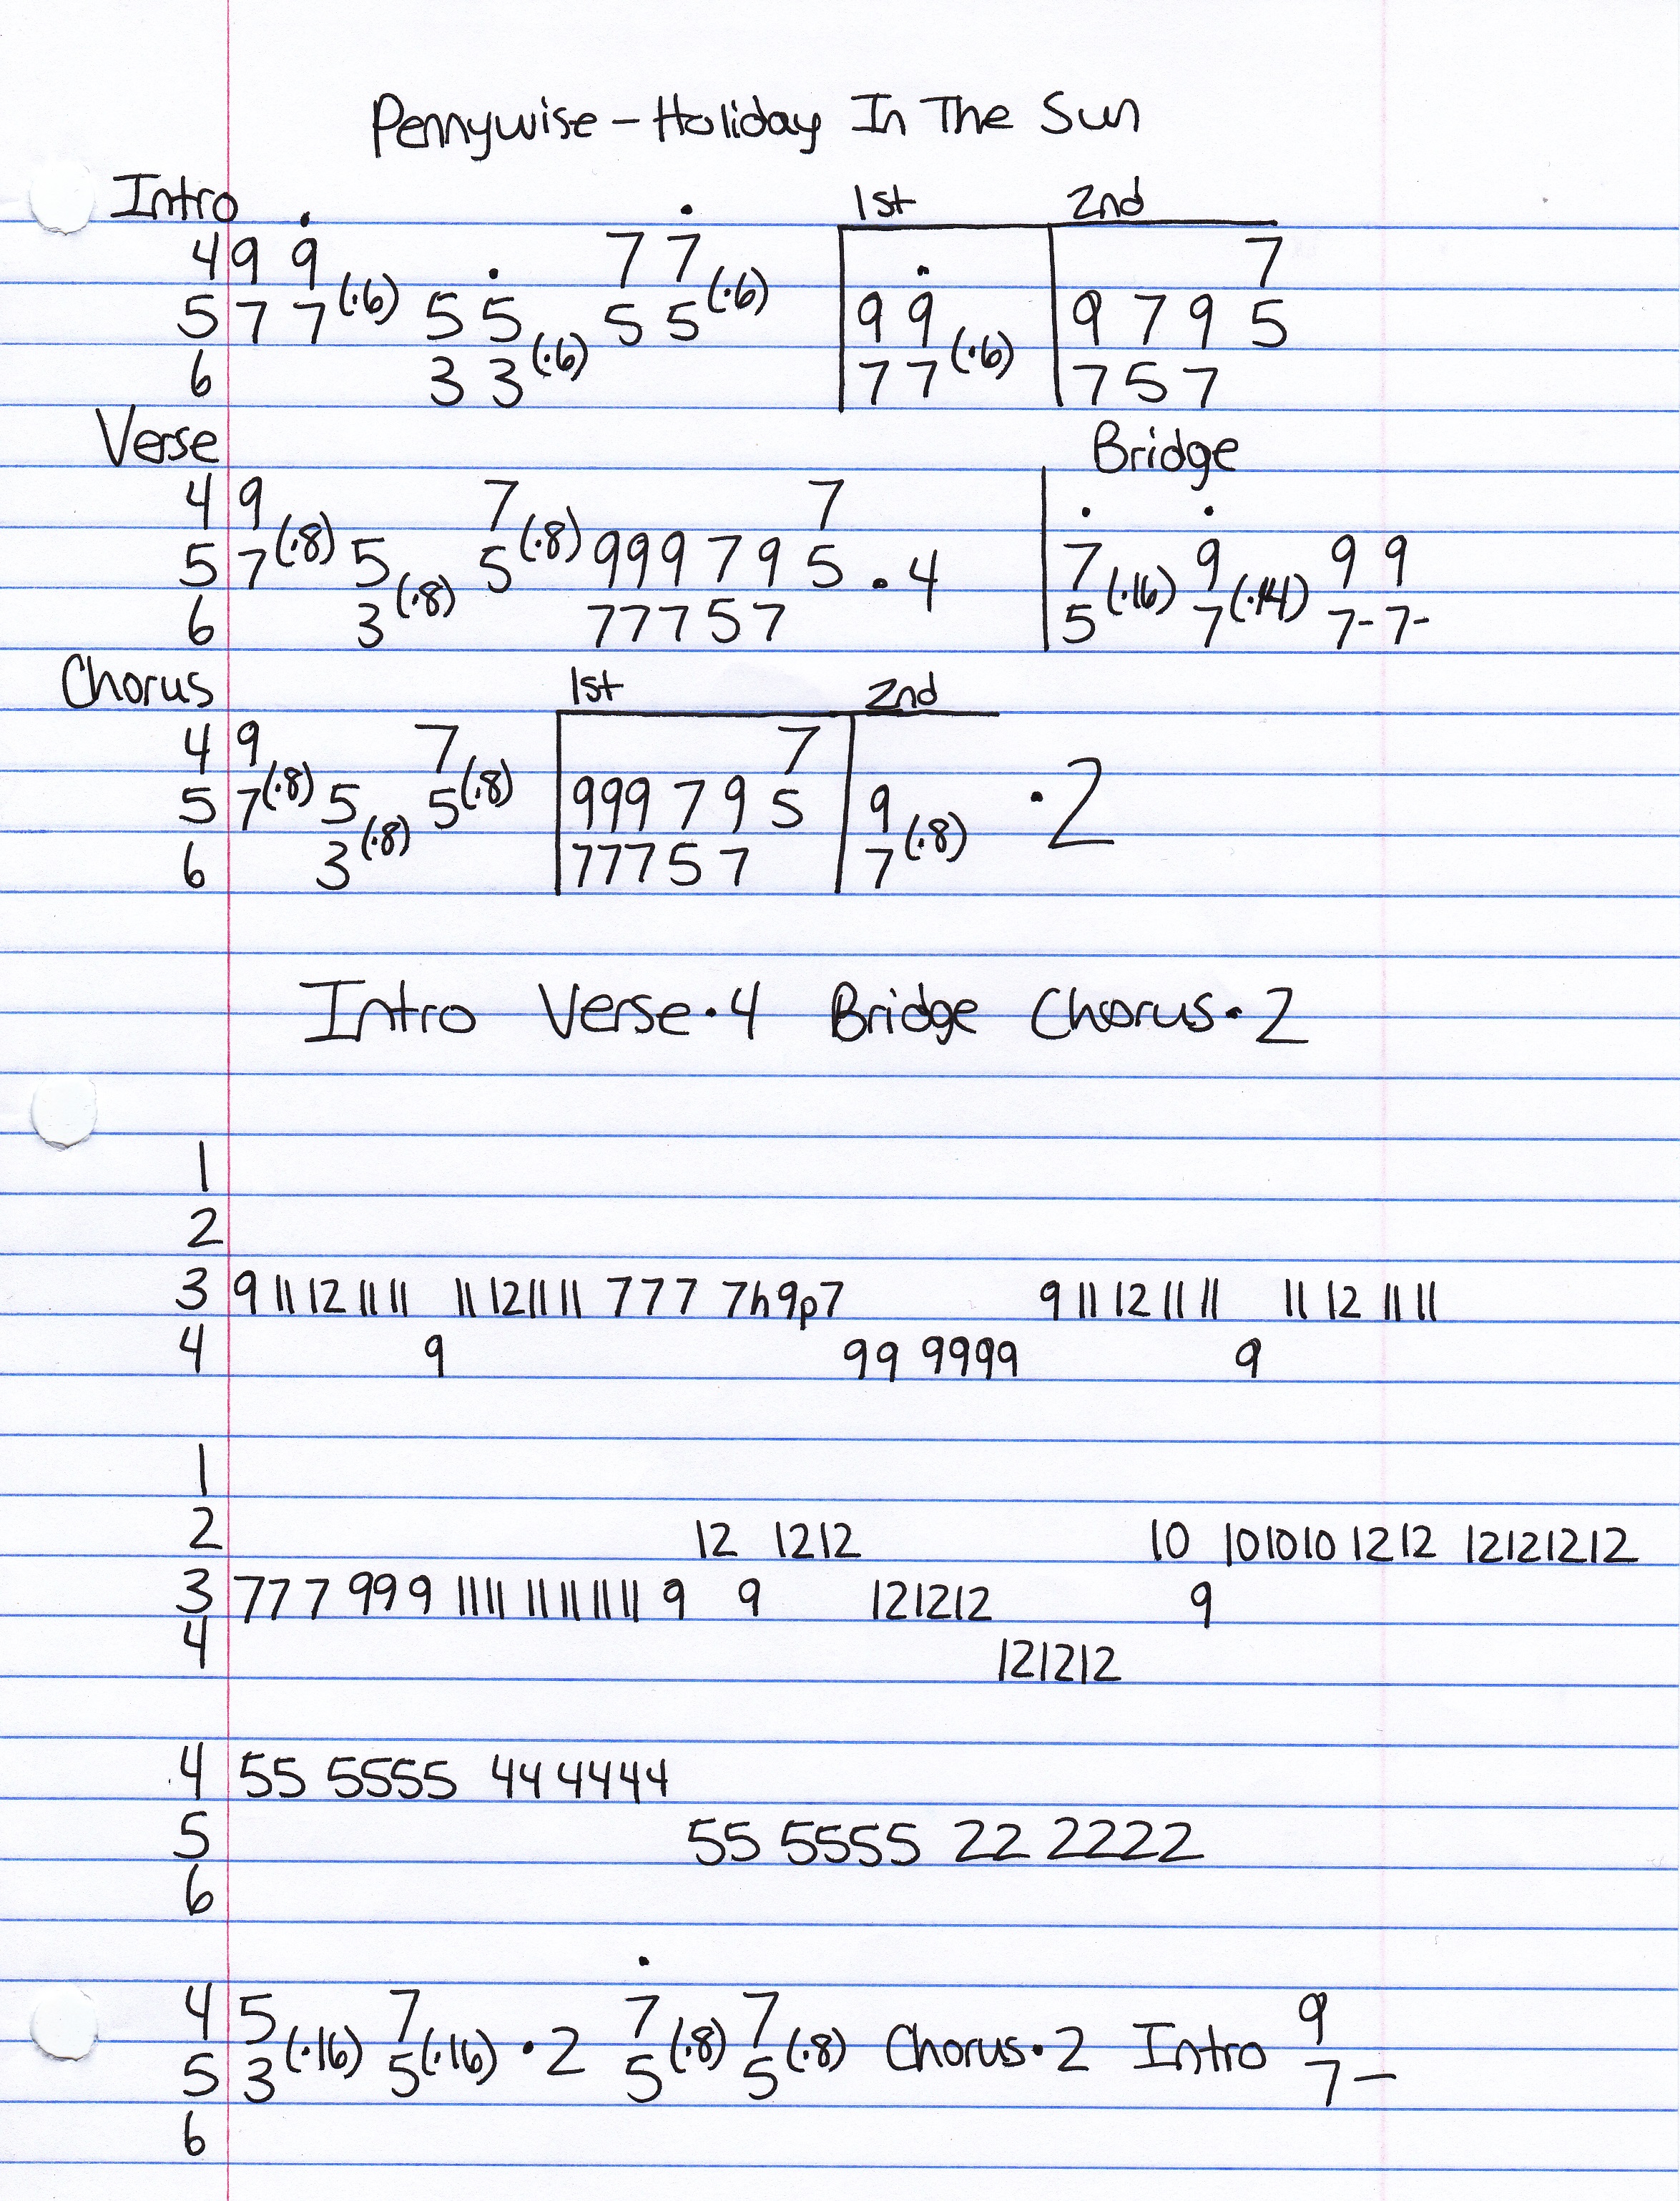 Pennywise - Holiday In The Sun
Intro . . 1st 2nd
4 9 9 . 7 7 . 7
5 7 7 (·6) 5 5 5 5 (·6) 9 9 9 7 9 5
6 3 3 (·6) 7 7 (·6) 7 5 7
Verse Bridge
4 9 7 7 . .
5 7 (·8) 5 5 (·8) 9 9 9 7 9 5 · 4 7 9 9 9
6 3 (·8) 7 7 7 5 7 5 (·16) 7 (·14) 7- 7-
Chorus 1st 2nd
4 9 7 7
5 7 (·8) 5 5 (·8) 9 9 9 7 9 5 9 · 2
6 3 (·8) 7 7 7 5 7 7 (·8)
Intro Verse · 4 Bridge Chorus · 2
1
2
3 9 11 12 11 11 11 12 11 11 7 7 7 7h9p7 9 11 12 11 11 11 12 11 11
4 9 99 9999 9
1
2 12 1212 10 101010 1212 12121212
3 77 7 99 9 1111 11111111 9 9 121212 9
4 121212
4 55 5555 44 4444
5 55 5555 22 2222
6
.
4 5 7 7 7 9
5 3 (·16) 5 (·16) · 2 5 (·8) 5 (·8) Chorus · 2 Intro 7-
6